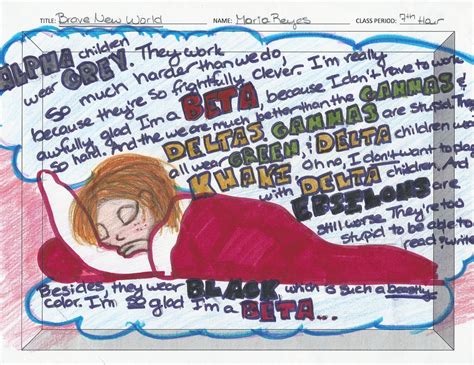 TITLE: Brave New World NAME: Maria Reyes CLASS PERIOD: 7th Hour
ALPHA children
wear GREY. They work
so much harder than we do,
because they're so frightfully clever. I'm really
awfully glad I'm a BETA, because I don't have to work
so hard. And the we are much better than the GAMMAS &
DELTAS. GAMMAS are stupid. They
all wear GREEN, & DELTA children wear
KHAKI. Oh no, I don't want to play
with DELTA children. And
EPSILONS are
still worse. They're too
stupid to be able to
read & write.
Besides, they wear BLACK which is such a beastly
color. I'm so glad I'm a BETA...